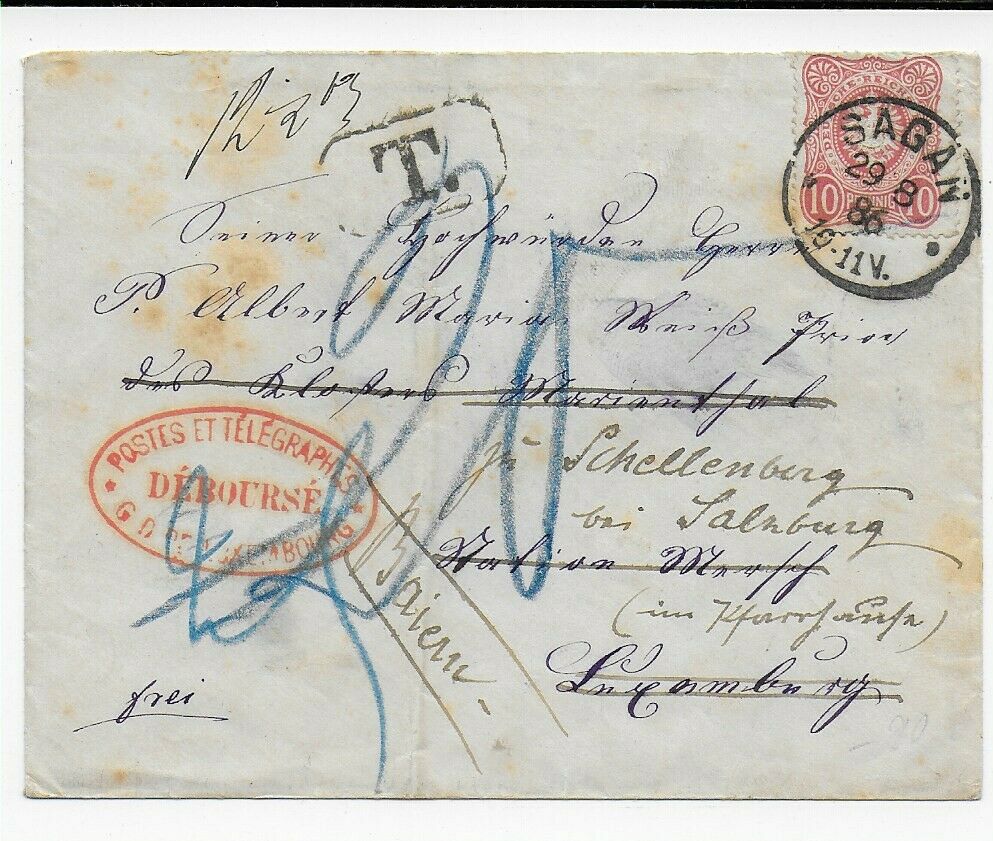 T.
DEUTSCHE REICHS
10 PFENNIG 10
SAGAN
29 8
86
10-11V.
Seiner Hochwürden Herrn
P. Albert Maria Weiß Prior
des Klosters Marienthal
zu Schellenberg
bei Salzburg
Station Mersch
(im Pfarrhause)
Luxemburg
Baiern
frei
POSTES ET TÉLÉGRAPHES
DÉBOURSÉ
G. D. DE LUXEMBOURG
25